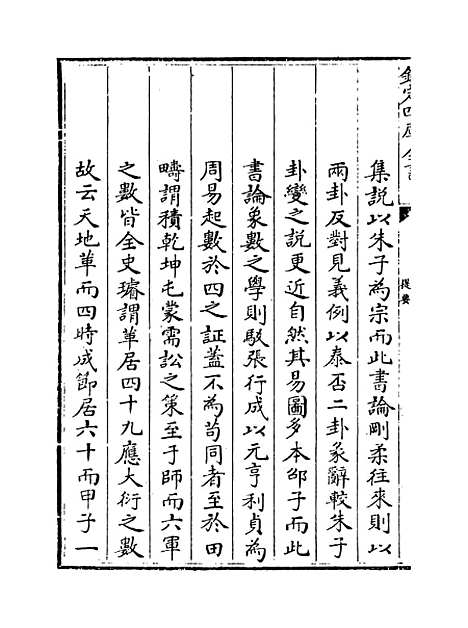 欽定四庫全書
提要
集說以朱子為宗而此書論剛柔往來則以
兩卦反對見義例以泰否二卦彖辭較朱子
卦變之說更近自然其易圖多本邵子而此
書論象數之學則駁張行成以元亨利貞為
周易起數於四之証蓋不為苟同者至於田
疇謂積乾坤屯蒙需訟之策至于師而六軍
之數皆全史璿謂革居四十九應大衍之數
故云天地革而四時成節居六十而甲子一